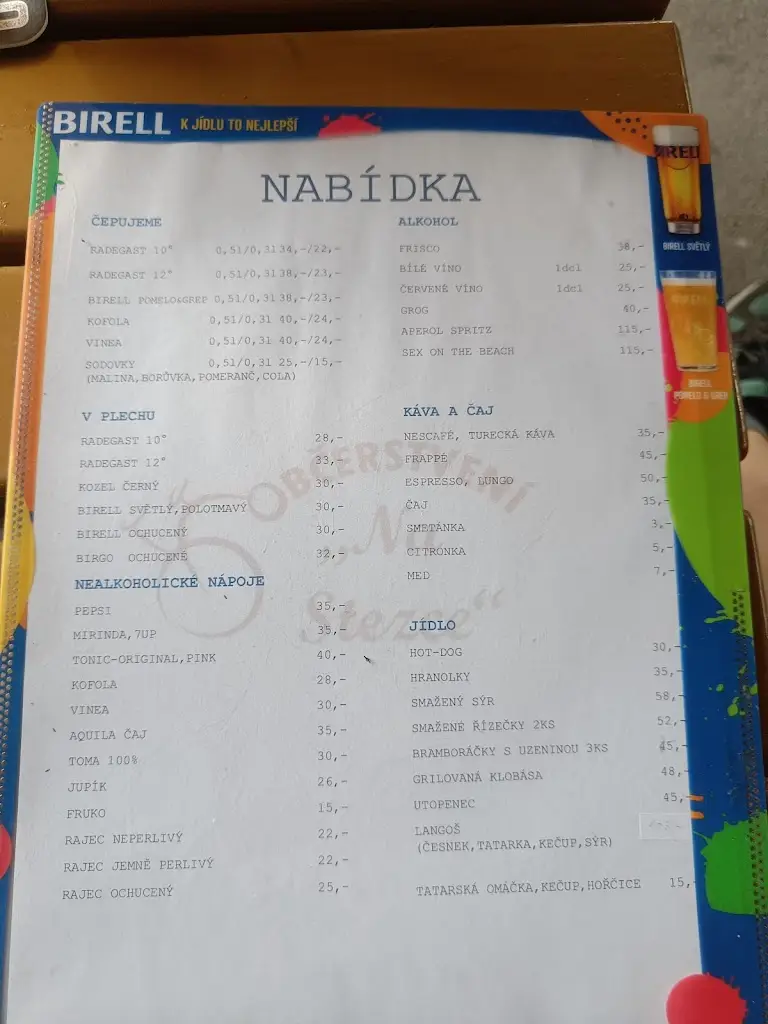 BIRELL K JÍDLU TO NEJLEPŠÍ
NABÍDKA
ČEPUJEME
RADEGAST 10° 0,5l/0,3l 34,-/22,-
RADEGAST 12° 0,5l/0,3l 38,-/23,-
BIRELL POMELO&GREP 0,5l/0,3l 38,-/23,-
KOFOLA 0,5l/0,3l 40,-/24,-
VINEA 0,5l/0,3l 40,-/24,-
SODOVKY 0,5l/0,3l 25,-/15,-
(MALINA,BORŮVKA,POMERANČ,COLA)
V PLECHU
RADEGAST 10° 28,-
RADEGAST 12° 33,-
KOZEL ČERNÝ 30,-
BIRELL SVĚTLÝ,POLOTMAVÝ 30,-
BIRELL OCHUCENÝ 30,-
BIRGO OCHUCENÉ 32,-
NEALKOHOLICKÉ NÁPOJE
PEPSI 35,-
MIRINDA,7UP 35,-
TONIC-ORIGINAL,PINK 40,-
KOFOLA 28,-
VINEA 30,-
AQUILA ČAJ 35,-
TOMA 100% 30,-
JUPÍK 26,-
FRUKO 15,-
RAJEC NEPERLIVÝ 22,-
RAJEC JEMNĚ PERLIVÝ 22,-
RAJEC OCHUCENÝ 25,-
ALKOHOL
FRISCO 38,-
BÍLÉ VÍNO 1dcl 25,-
ČERVENÉ VÍNO 1dcl 25,-
GROG 40,-
APEROL SPRITZ 115,-
SEX ON THE BEACH 115,-
KÁVA A ČAJ
NESCAFÉ, TURECKÁ KÁVA 35,-
FRAPPÉ 45,-
ESPRESSO, LUNGO 50,-
ČAJ 35,-
SMETÁNKA 3,-
CITRONKA 5,-
MED 7,-
JÍDLO
HOT-DOG 30,-
HRANOLKY 35,-
SMAŽENÝ SÝR 58,-
SMAŽENÉ ŘÍZEČKY 2KS 52,-
BRAMBORÁČKY S UZENINOU 3KS 45,-
GRILOVANÁ KLOBÁSA 48,-
UTOPENEC 45,-
LANGOŠ
(ČESNEK,TATARKA,KEČUP,SÝR)
TATARSKÁ OMÁČKA,KEČUP,HOŘČICE 15,-
OBČERSTVENÍ
„Na
Stezce“
BIRELL SVĚTLÝ
BIRELL
POMELO & GREP